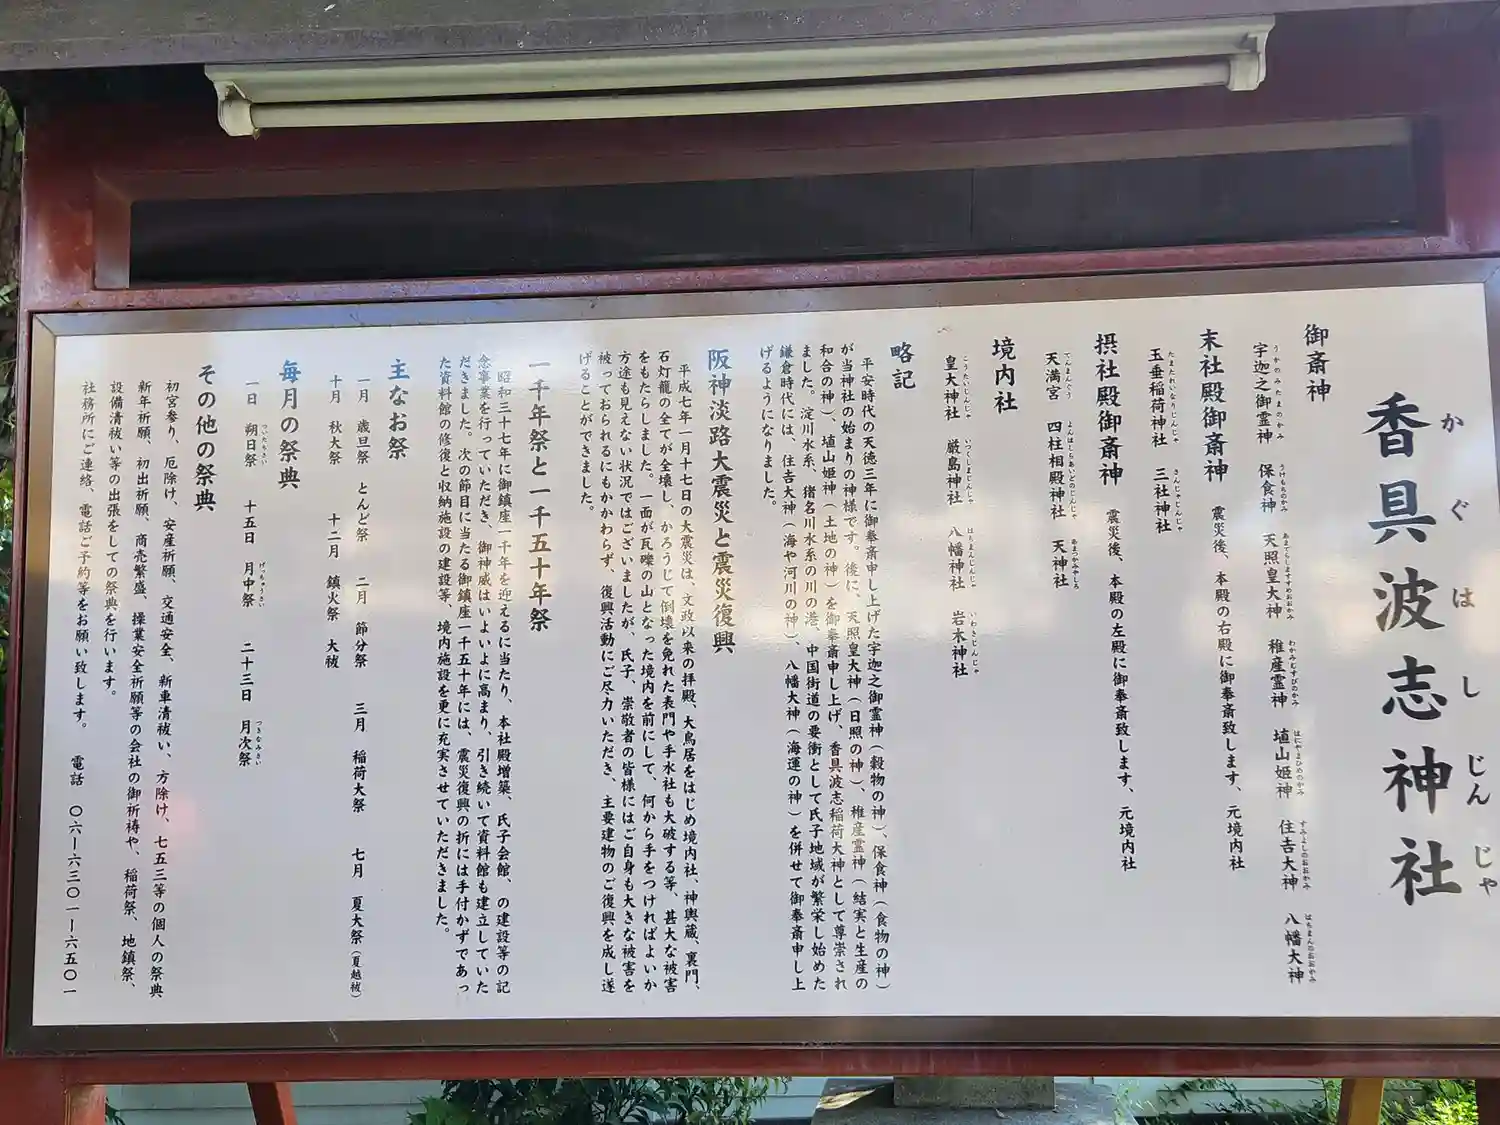 香具波志神社
かぐはしじんじゃ
御斎神
宇迦之御霊神　保食神　天照皇大神　稚産霊神　埴山姫神　住吉大神　八幡大神
うかのみたまのかみ　うけもちのかみ　あまてらしますすめおおかみ　わかみむすびのかみ　はにやまひめのかみ　すみよしのおおかみ　はちまんのおおかみ
末社殿御斎神　震災後、本殿の右殿に御奉斎致します、元境内社
玉垂稲荷神社　三社神社
たまたれいなりじんじゃ　さんじゃじんじゃ
摂社殿御斎神　震災後、本殿の左殿に御奉斎致します、元境内社
天満宮　四柱相殿神社　天神社
てんまんぐう　よんはしらあいどのじんじゃ　あまつかみやしろ
境内社
皇大神社　厳島神社　八幡神社　岩木神社
こうたいじんじゃ　いつくしまじんじゃ　はちまんじんじゃ　いわきじんじゃ
略記
平安時代の天徳三年に御奉斎申し上げた宇迦之御霊神（穀物の神）、保食神（食物の神）
が当神社の始まりの神様です。後に、天照皇大神（日照の神）、稚産霊神（結実と生産の
和合の神）、埴山姫神（土地の神）を御奉斎申し上げ、香具波志稲荷大神として尊崇され
ました。淀川水系、猪名川水系の川の港、中国街道の要衝として氏子地域が繁栄し始めた
鎌倉時代には、住吉大神（海や河川の神）、八幡大神（海運の神）を併せて御奉斎申し上
げるようになりました。
阪神淡路大震災と震災復興
平成七年一月十七日の大震災は、文政以来の拝殿、大鳥居をはじめ境内社、神輿蔵、裏門、
石灯籠の全てが全壊し、かろうじて倒壊を免れた表門や手水社も大破する等、甚大な被害
をもたらしました。一面が瓦礫の山となった境内を前にして、何から手をつければよいか
方途も見えない状況ではございましたが、氏子、崇敬者の皆様にはご自身も大きな被害を
被っておられるにもかかわらず、復興活動にご尽力いただき、主要建物のご復興を成し遂
げることができました。
一千年祭と一千五十年祭
昭和三十七年に御鎮座一千年を迎えるに当たり、本社殿増築、氏子会館、の建設等の記
念事業を行っていただき、御神威はいよいよに高まり、引き続いて資料館も建立していた
だきました。次の節目に当たる御鎮座一千五十年には、震災復興の折には手付かずであっ
た資料館の修復と収納施設の建設等、境内施設を更に充実させていただきました。
主なお祭
一月　歳旦祭　とんど祭　二月　節分祭　三月　稲荷大祭　七月　夏大祭（夏越祓）
十月　秋大祭　十二月　鎮火祭　大祓
毎月の祭典
一日　朔日祭　十五日　月中祭　二十三日　月次祭
ついたちさい　げっちゅうさい　つきなみさい
その他の祭典
初宮参り、厄除け、安産祈願、交通安全、新車清祓い、方除け、七五三等の個人の祭典
新年祈願、初出祈願、商売繁盛、操業安全祈願等の会社の御祈祷や、稲荷祭、地鎮祭、
設備清祓い等の出張をしての祭典を行います。
社務所にご連絡、電話ご予約等をお願い致します。　電話　〇六ー六三〇一ー六五〇一